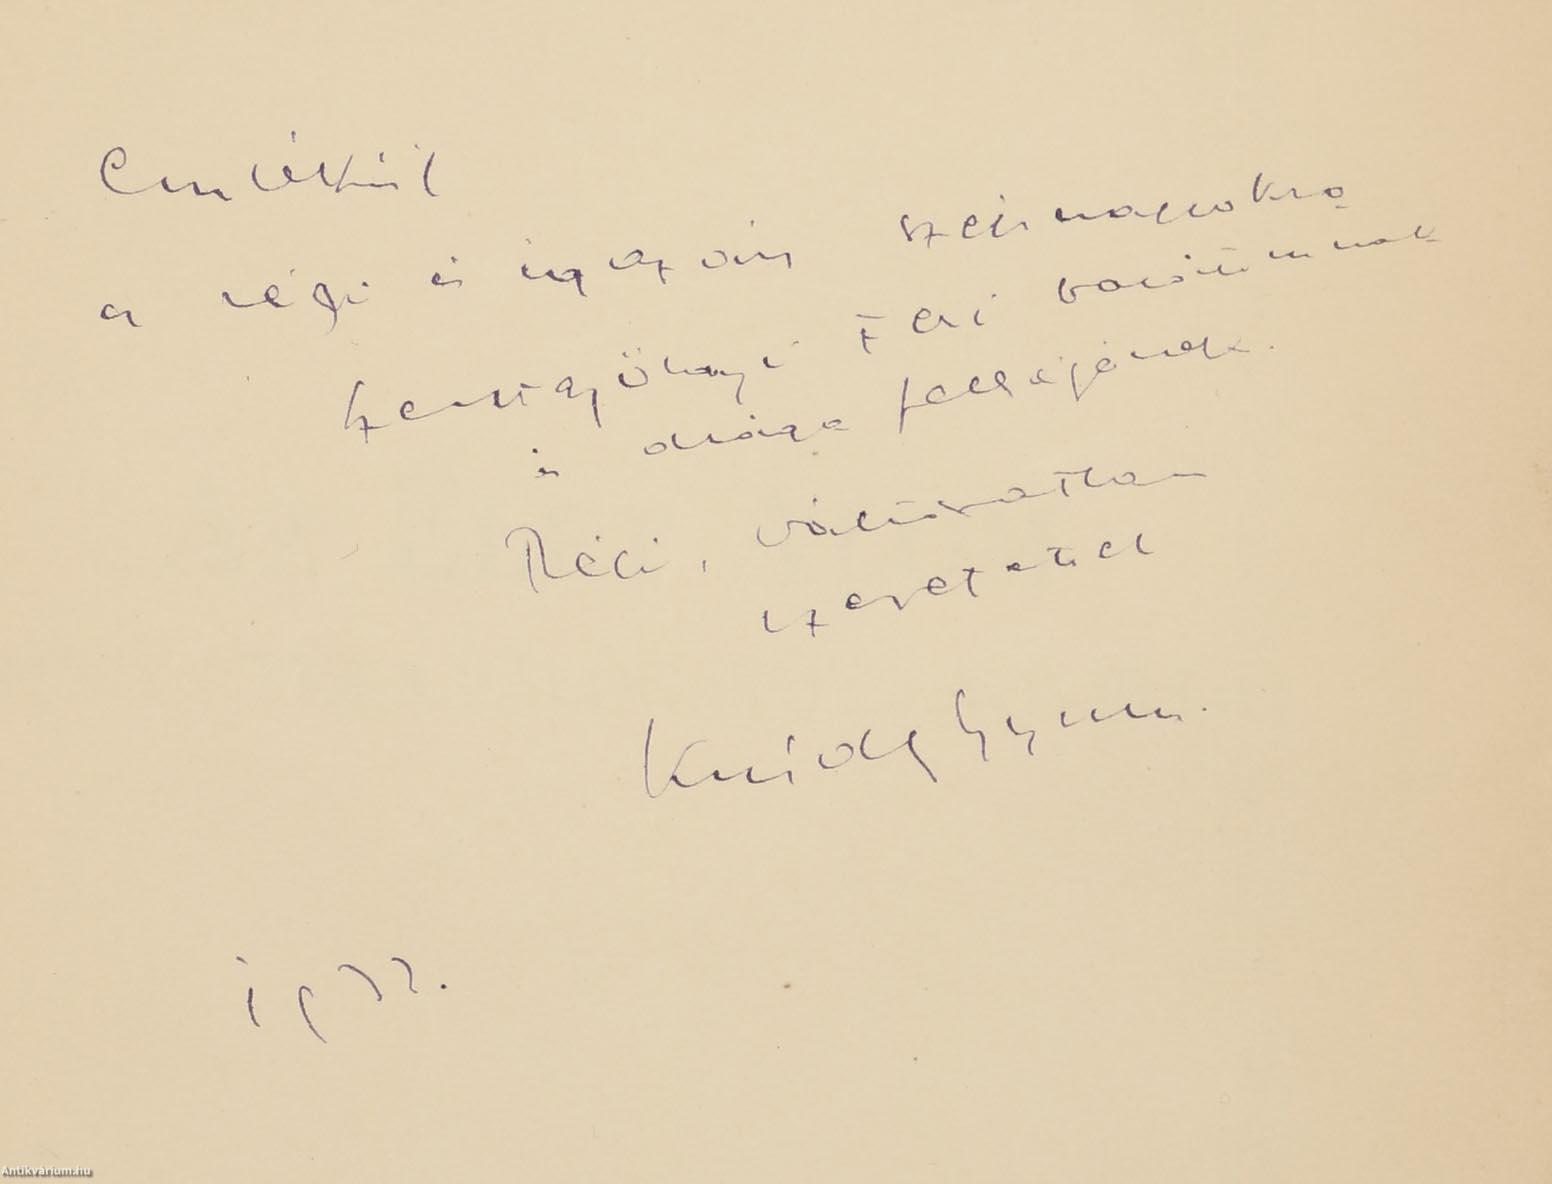 Emlékül
a régi és igazán szép napokra
Szentgyörgyi Feri barátomnak
és drága feleségének.
Régi, változatlan
szeretettel
Krúdy
1972.
Antikvárium.hu